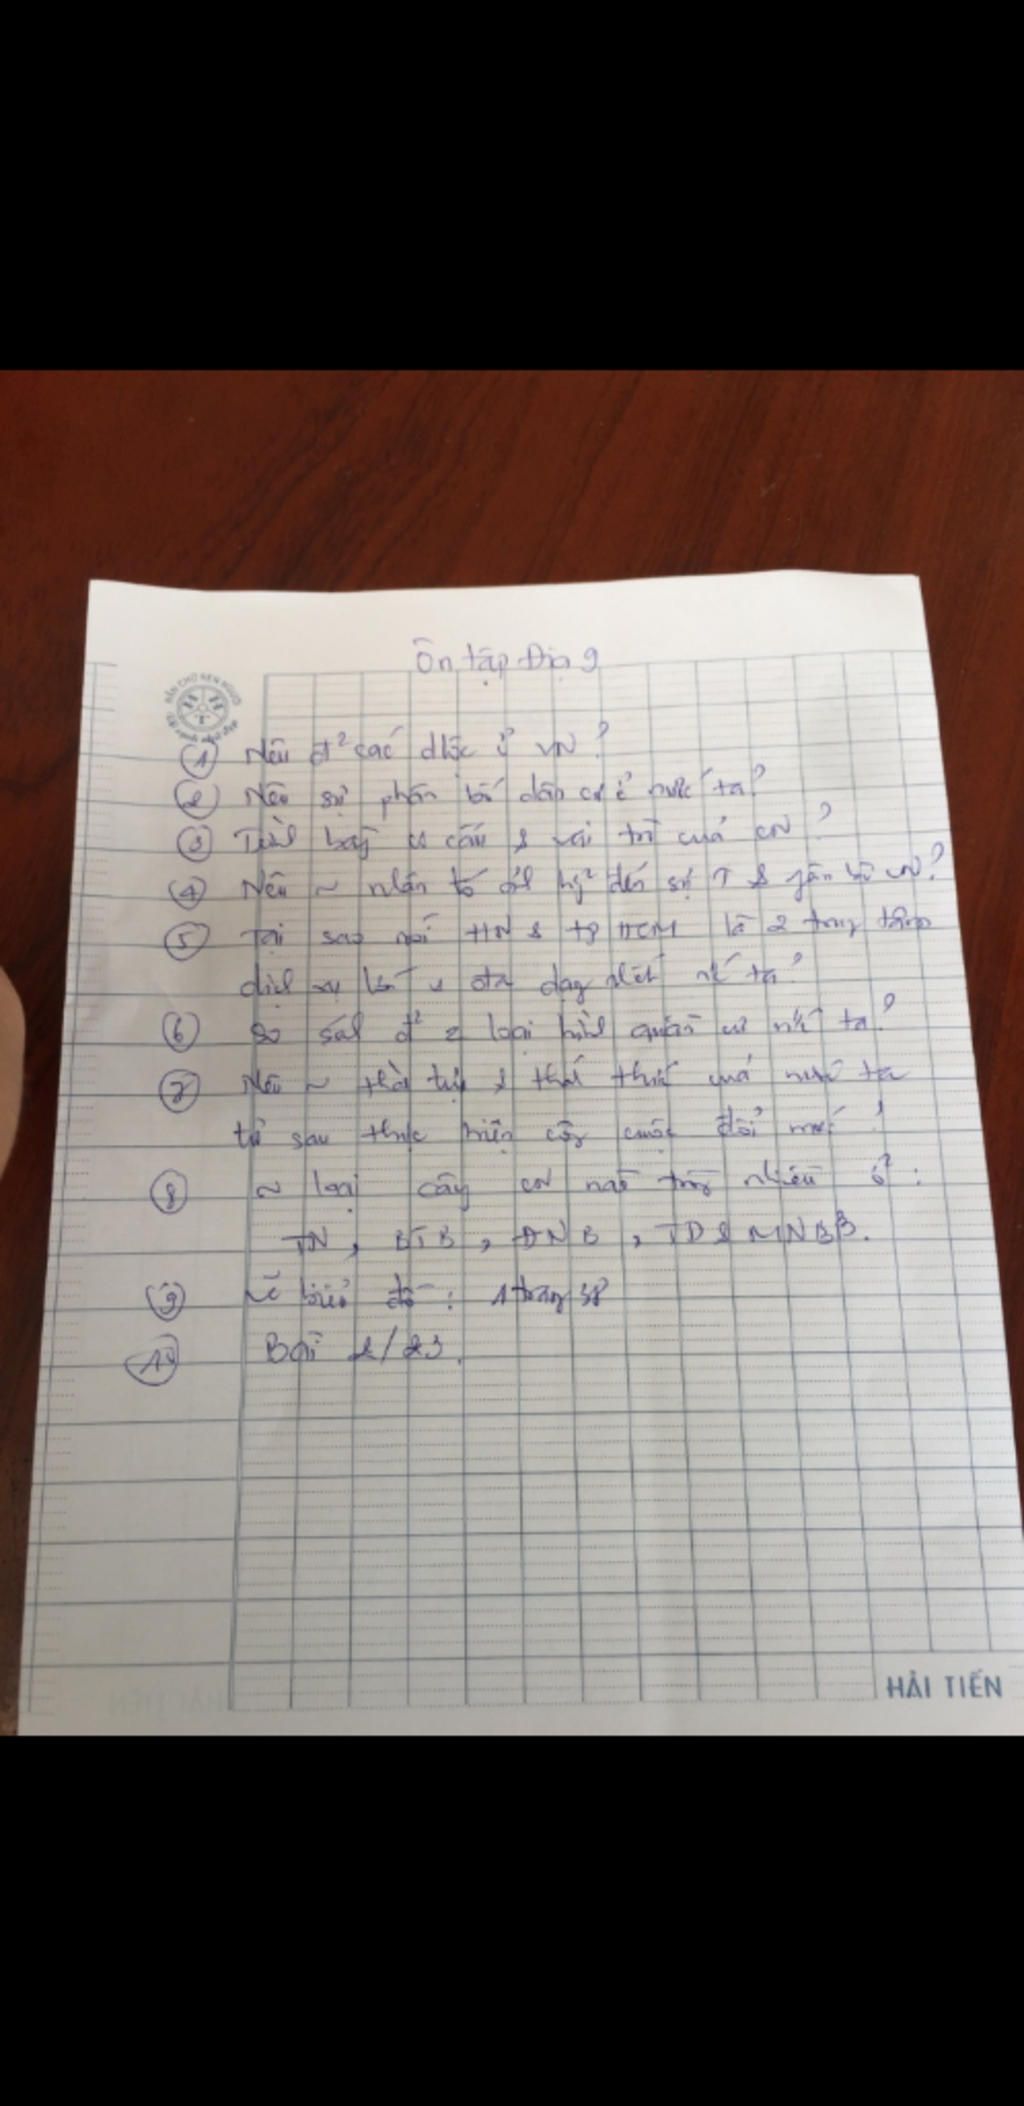 Ôn tập Địa 9
① Nêu đ² các dtộc ở VN?
② Nêu sự phân bố dân cư ở nước ta?
③ bày cơ cấu & vai trò của CN?
④ Nêu ~ nhân tố đến sự T & VN?
⑤ Tại sao nói HN & TP HCM là 2 trung tâm
dịch vụ lớn & đa dạng nhất ta?
⑥ So sánh đ² 2 loại hình quần cư ta?
⑦ Nêu ~ & thách thức của nước ta
từ sau thực hiện công cuộc đổi mới!
⑧ ~ loại cây CN nào trồng nhiều ở²:
TN, BTB, ĐNB, TD & MNBB.
⑨ Vẽ biểu đồ: 1 trang 38
⑩ Bài 2/23.
HẢI TIẾN